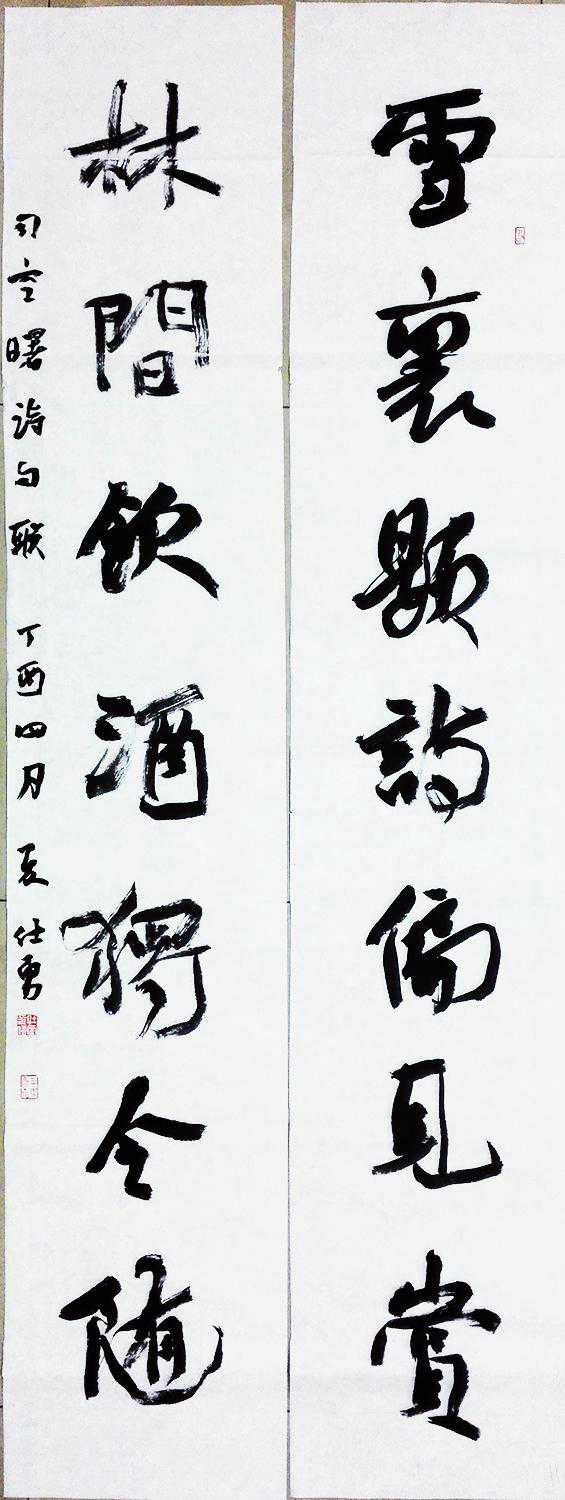 雪裏題詩偏見賞
林間飲酒獨令隨
司空曙詩句聯 丁酉四月 夏仕勇